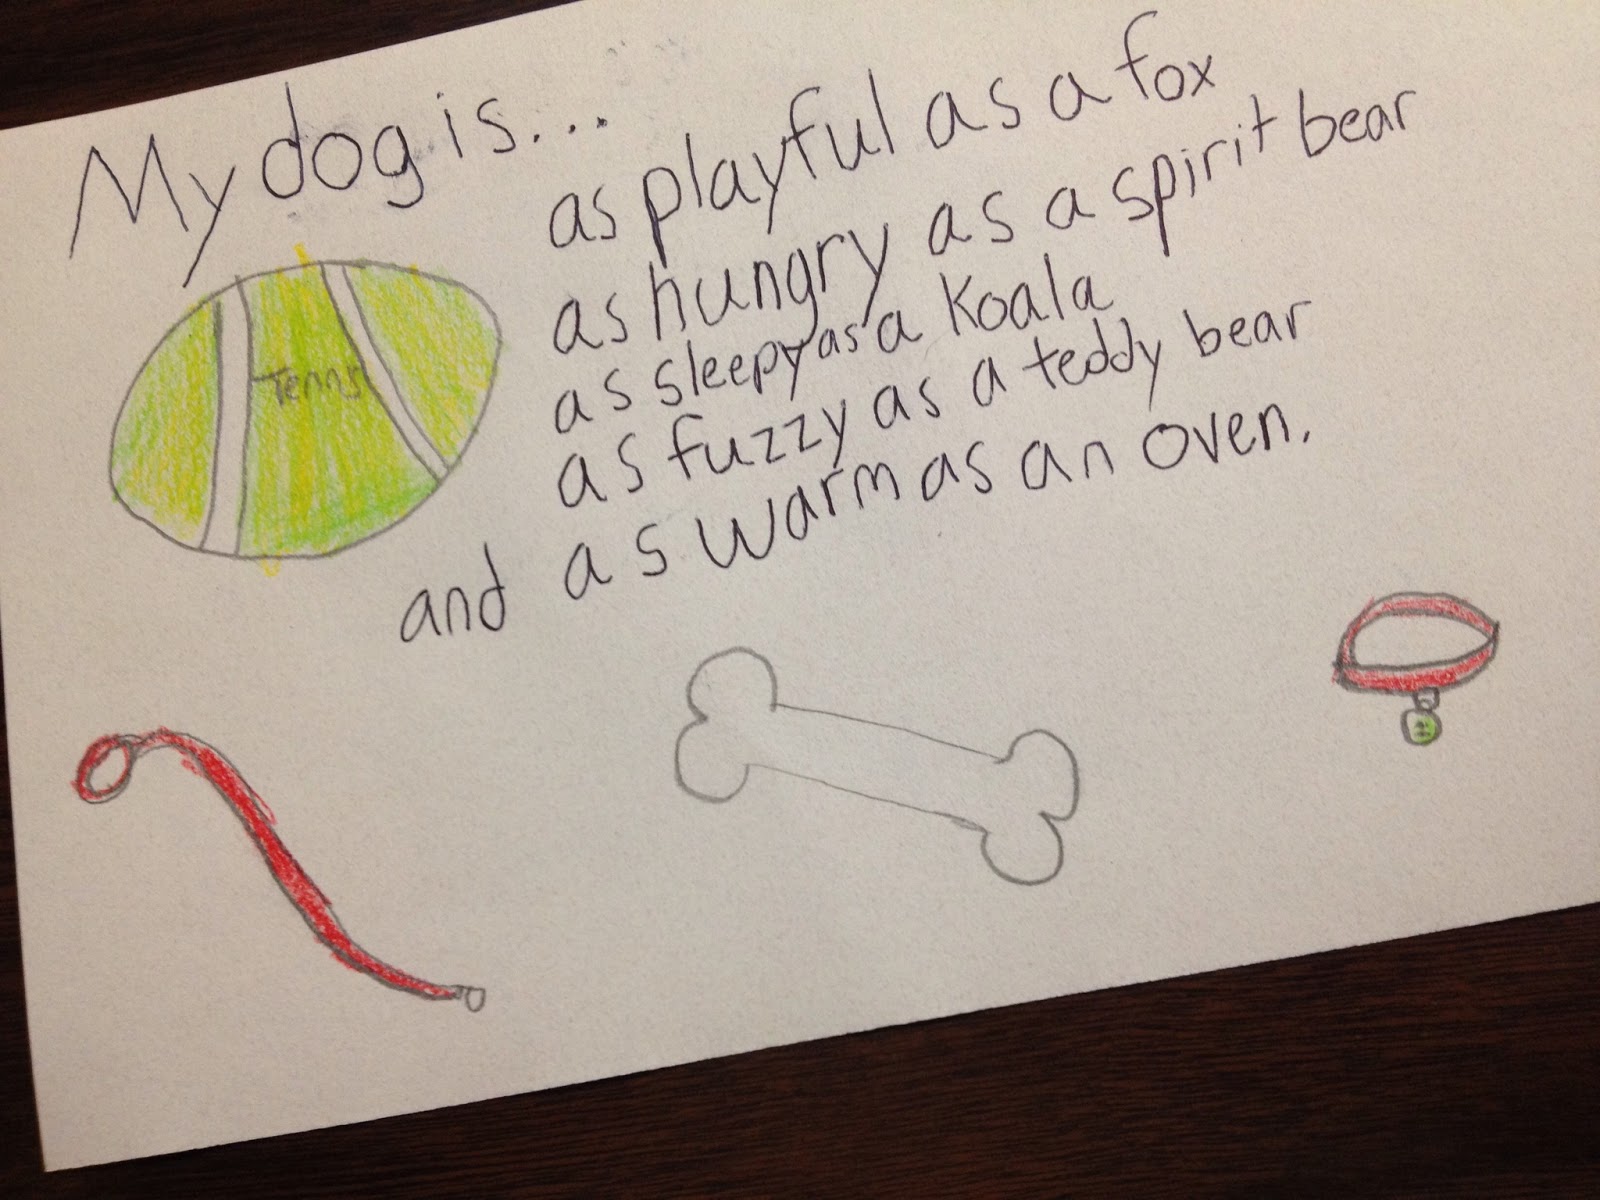 My dog is...
as playful as a fox
as hungry as a spirit bear
as sleepy as a Koala
as fuzzy as a teddy bear
and as warm as an oven.
Tennis